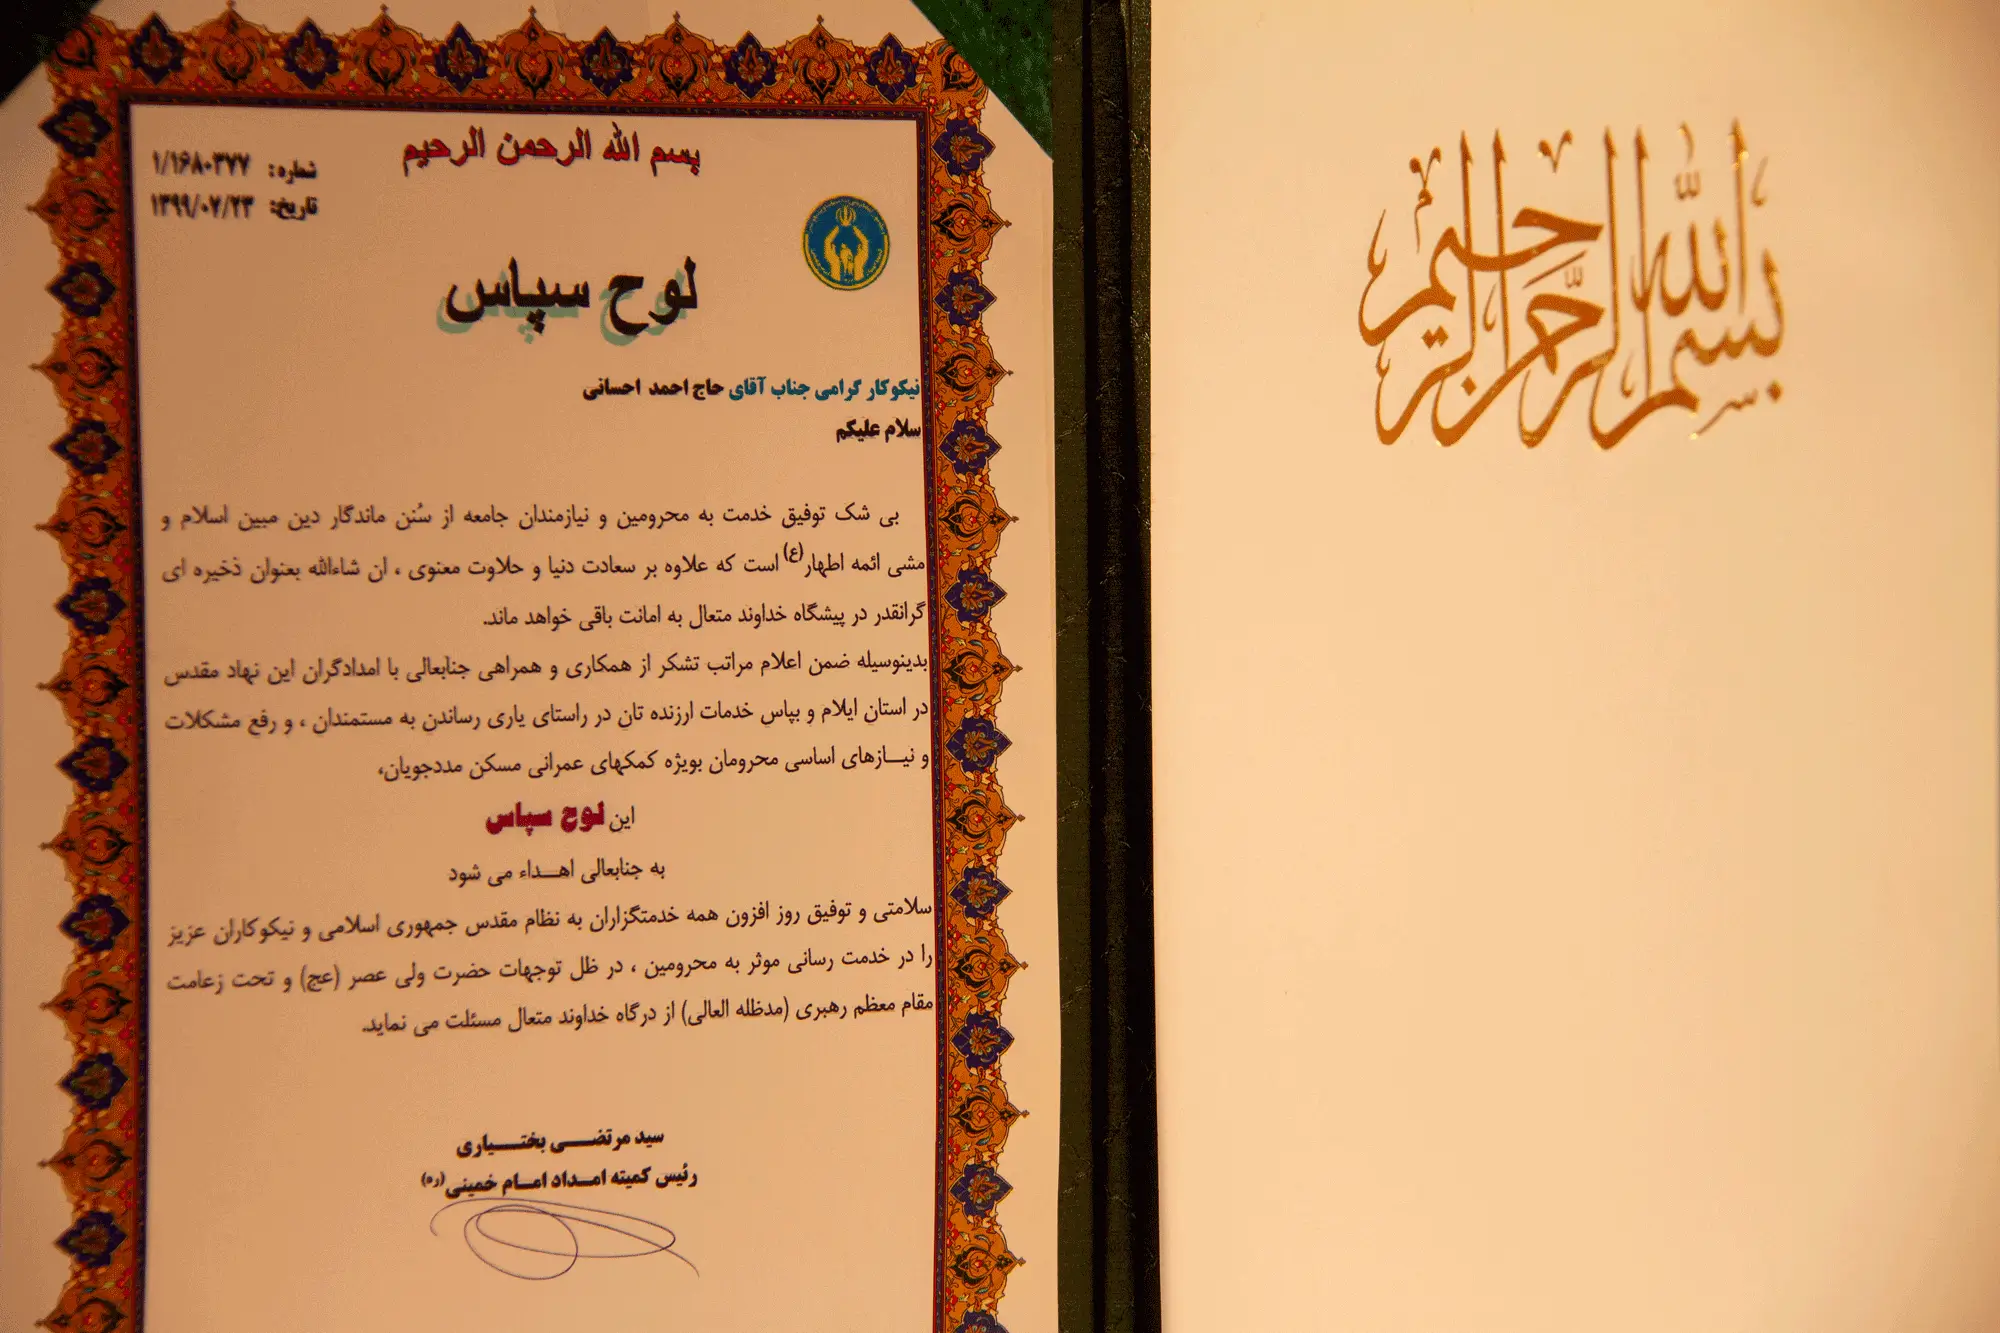 بسم الله الرحمن الرحیم
شماره: ۱/۱۶۸۰۳۷۷
تاریخ: ۱۳۹۹/۰۷/۲۳
لوح سپاس
نیکوکار گرامی جناب آقای حاج احمد احسانی
سلام علیکم
بی شک توفیق خدمت به محرومین و نیازمندان جامعه از سُنن ماندگار دین مبین اسلام و
مشی ائمه اطهار(ع) است که علاوه بر سعادت دنیا و حلاوت معنوی ، ان شاءالله بعنوان ذخیره ای
گرانقدر در پیشگاه خداوند متعال به امانت باقی خواهد ماند.
بدینوسیله ضمن اعلام مراتب تشکر از همکاری و همراهی جنابعالی با امدادگران این نهاد مقدس
در استان ایلام و بپاس خدمات ارزنده تان در راستای یاری رساندن به مستمندان ، و رفع مشکلات
و نیـــازهای اساسی محرومان بویژه کمکهای عمرانی مسکن مددجویان،
این لوح سپاس
به جنابعالی اهـــداء می شود
سلامتی و توفیق روز افزون همه خدمتگزاران به نظام مقدس جمهوری اسلامی و نیکوکاران عزیز
را در خدمت رسانی موثر به محرومین ، در ظل توجهات حضرت ولی عصر (عج) و تحت زعامت
مقام معظم رهبری (مدظله العالی) از درگاه خداوند متعال مسئلت می نماید.
سید مرتضـــی بختـــیاری
رئیس کمیته امـداد امـام خمینی(ره)
بسم الله الرحمن الرحیم